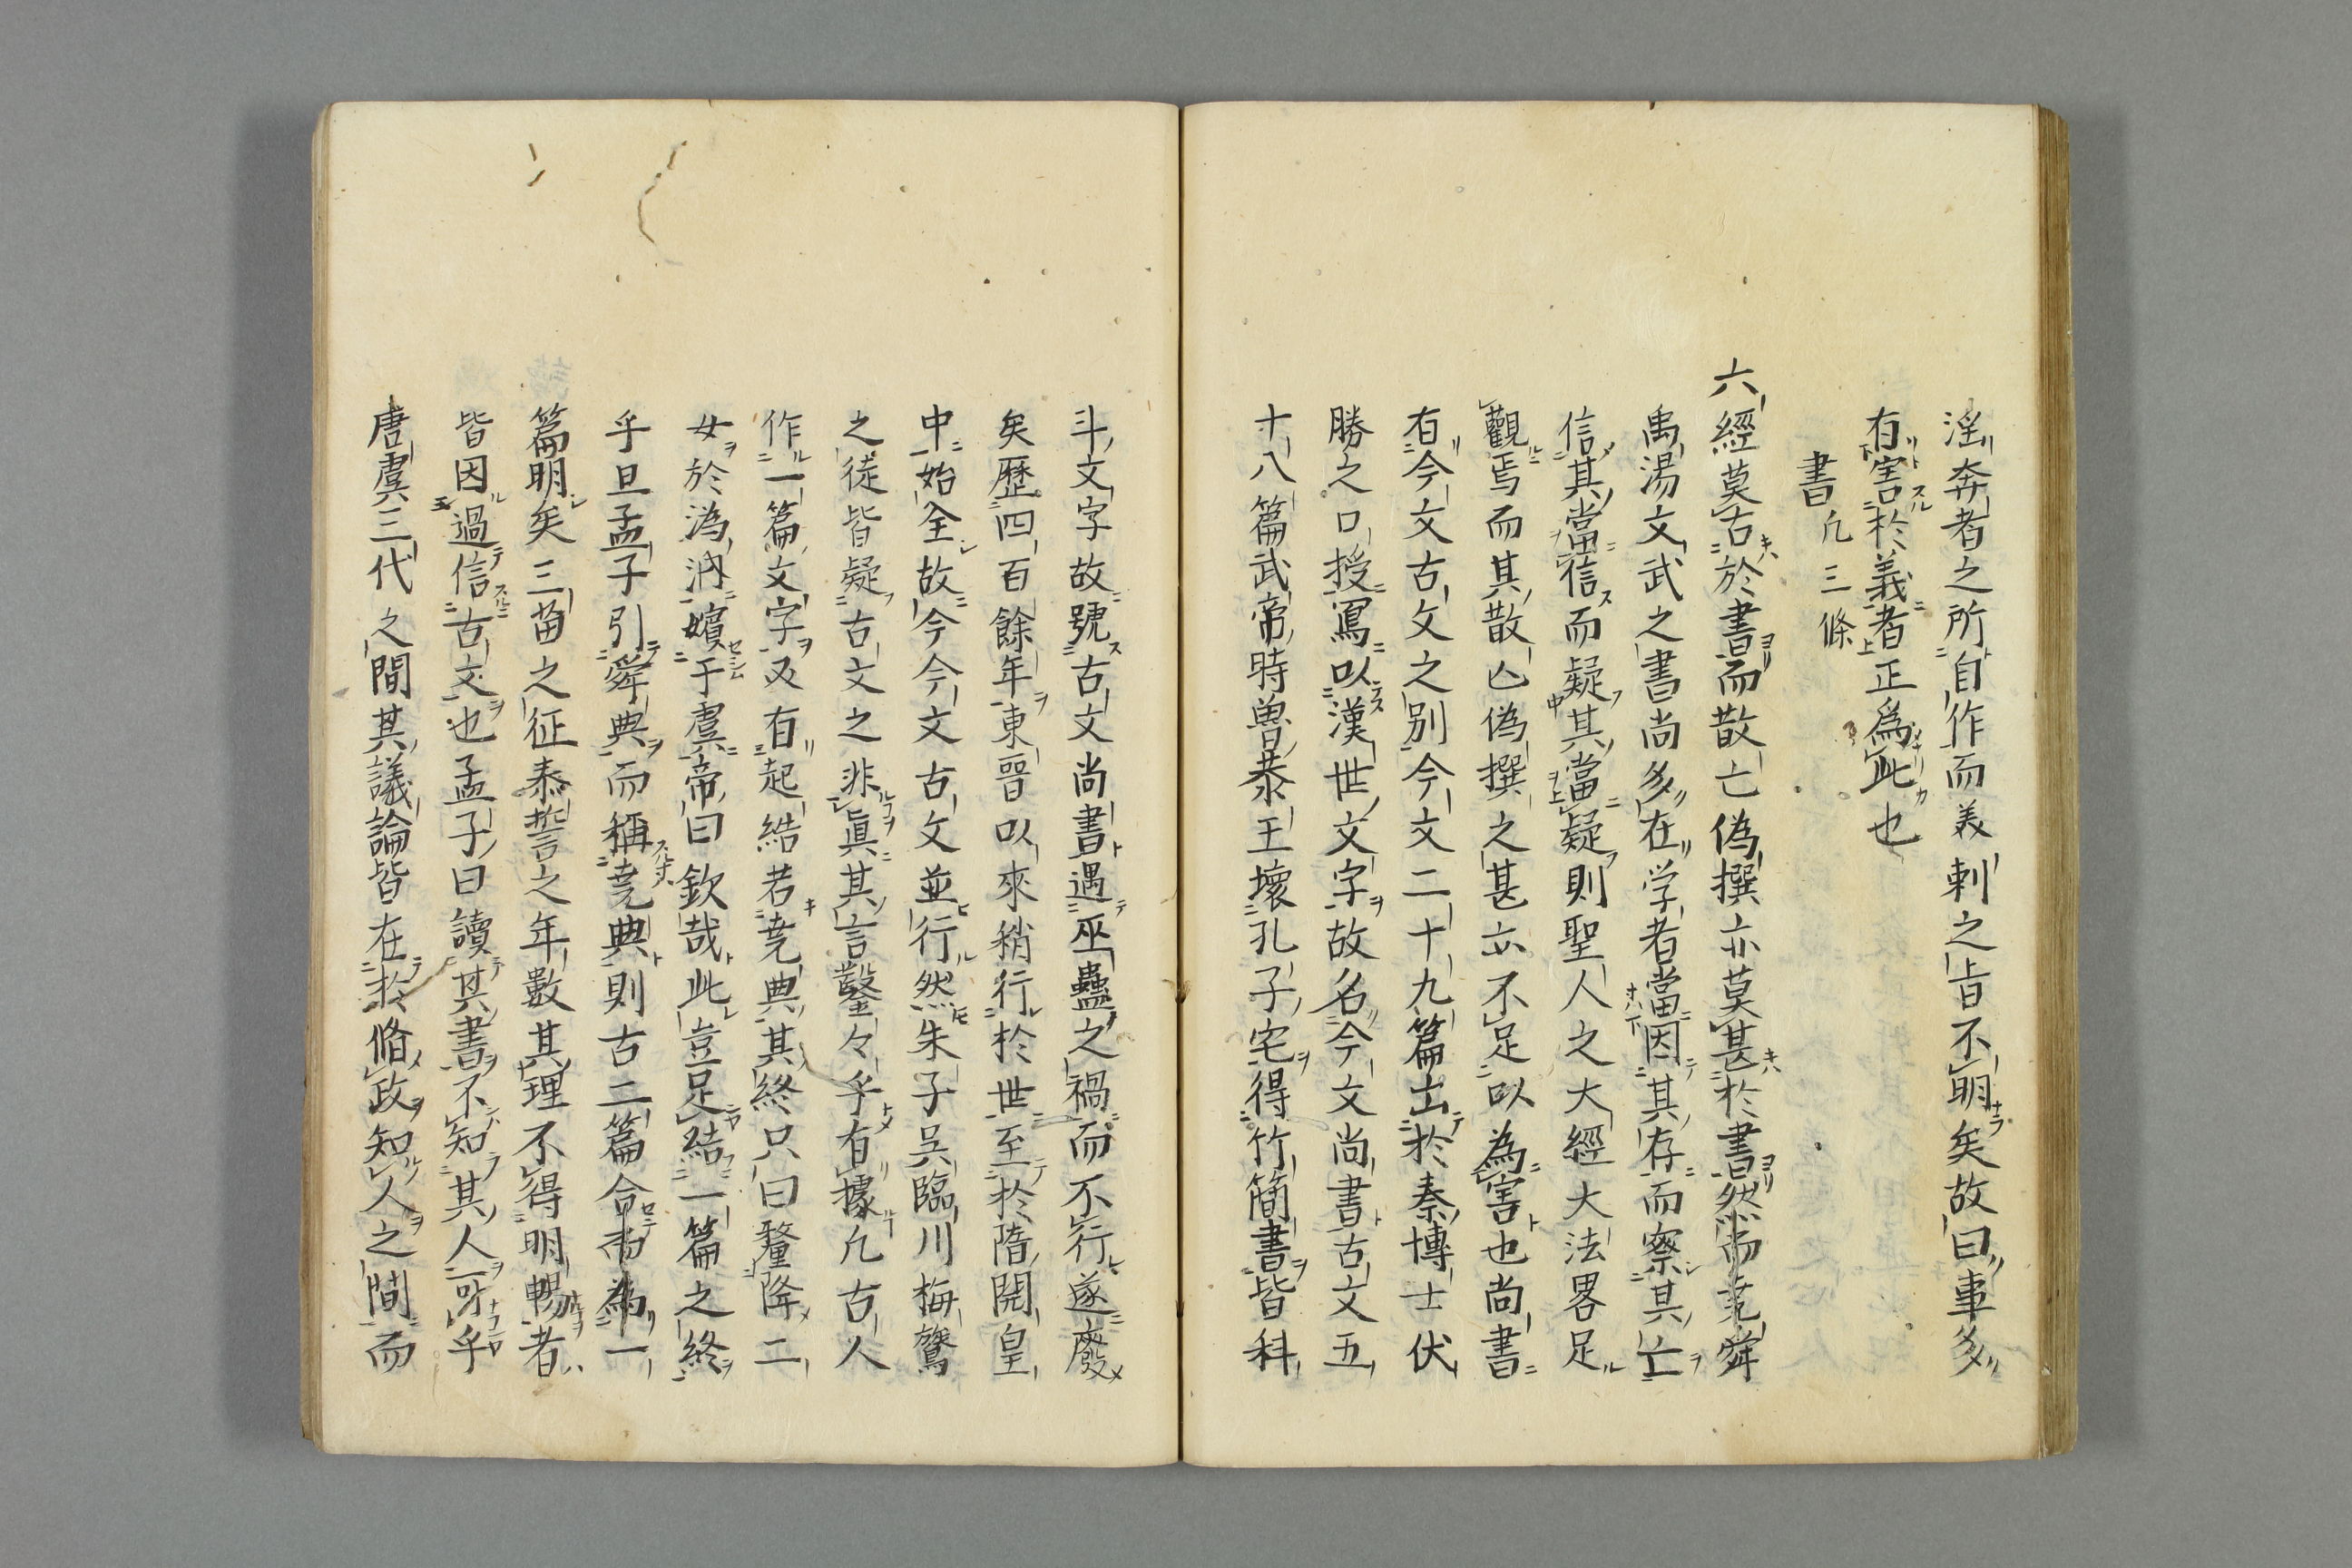 淫奔者之所自作而美刺之旨不明矣故曰事多
有害於義者正為此也
書凢三條
六經莫古於書而散亡偽撰亦莫甚於書然而堯舜
禹湯文武之書尚多在学者當因其存而察其亡
信其當信而疑其當疑則聖人之大經大法畧足
觀焉而其散亾偽撰之甚亦不足以為害也尚書
有今文古文之別今文二十九篇出於秦博士伏
勝之口授寫以漢世文字故名今文尚書古文五
十八篇武帝時魯恭王壞孔子宅得竹簡書皆科
斗文字故號古文尚書遇巫蠱之禍而不行遂廢
矣歷四百餘年東晋以來稍行於世至於隋開皇
中始全故今今文古文並行然朱子吳臨川梅鷟
之徒皆疑古文之非眞其言鑿々乎有據凢古人
作一篇文字必有起結若堯典其終只曰釐降二
女於溈汭嬪于虞帝曰欽哉此豈足結一篇之終
乎且孟子引舜典而稱堯典則古二篇合而為一
篇明矣三苗之征泰誓之年數其理不得明暢者
皆因過信古文也孟子曰讀其書不知其人可乎
唐虞三代之間其議論皆在於脩政知人之間而